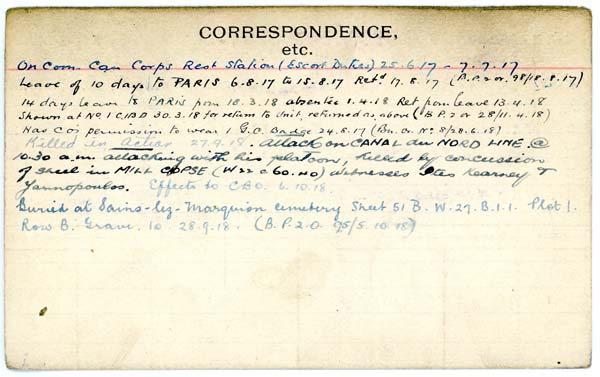 CORRESPONDENCE,
etc.
On Com. Can Corps Rest Station (Escort Duties) 25.6.17 - 7.7.17
Leave of 10 days to PARIS 6.8.17 to 15.8.17 Retd 17.8.17 (B.P.2 or. 98/18.8.17)
14 days leave to PARIS from 18.3.18 absentee 1.4.18 Ret from leave 13.4.18
Shown at No 1 C.I.B.D 30.3.18 for return to Unit, returned as above (B.P.2 or 28/11.4.18)
Has COs permission to wear 1 G.C. Badge 24.5.17 (Bn. Or. No. 8/28.6.18)
Killed in Action 27.9.18. attack on CANAL du NORD LINE. @
10.30 a.m. attacking with his platoon, killed by concussion
of shell in MILL COPSE (W22 c 60.40) witnesses Ptes Kearney &
Yannopoulos. Effects to C.B.O. 6.10.18.
Buried at Sains-lez-Marquion cemetery Sheet 51 B. W.27.B.1.1. Plot 1.
Row B. Grave. 10. 28.9.18. (B.P.2.O. 95/5.10.18)